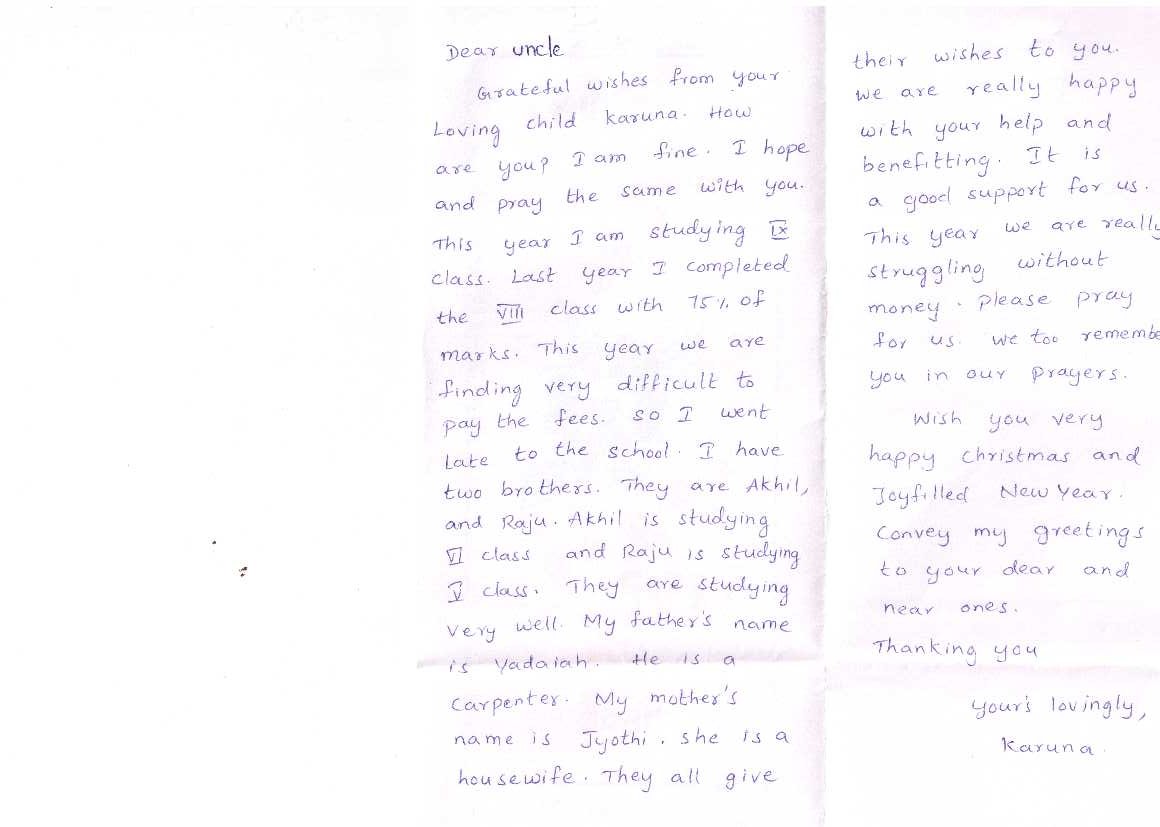 Dear uncle
Grateful wishes from your
Loving child karuna. How
are you? I am fine. I hope
and pray the same with you.
This year I am studying IX
class. Last year I completed
the VIII class with 75% of
marks. This year we are
finding very difficult to
pay the fees. so I went
Late to the school. I have
two brothers. They are Akhil,
and Raju. Akhil is studying
VI class and Raju is studying
V class. They are studying
very well. My father's name
is Yadaiah. He is a
carpenter. My mother's
name is Jyothi. she is a
housewife. They all give
their wishes to you.
we are really happy
with your help and
benefitting. It is
a good support for us.
This year we are really
struggling without
money. please pray
for us. we too remembe
you in our prayers.
Wish you very
happy christmas and
Joyfilled New Year.
Convey my greetings
to your dear and
near ones.
Thanking you
your's lovingly,
Karuna.